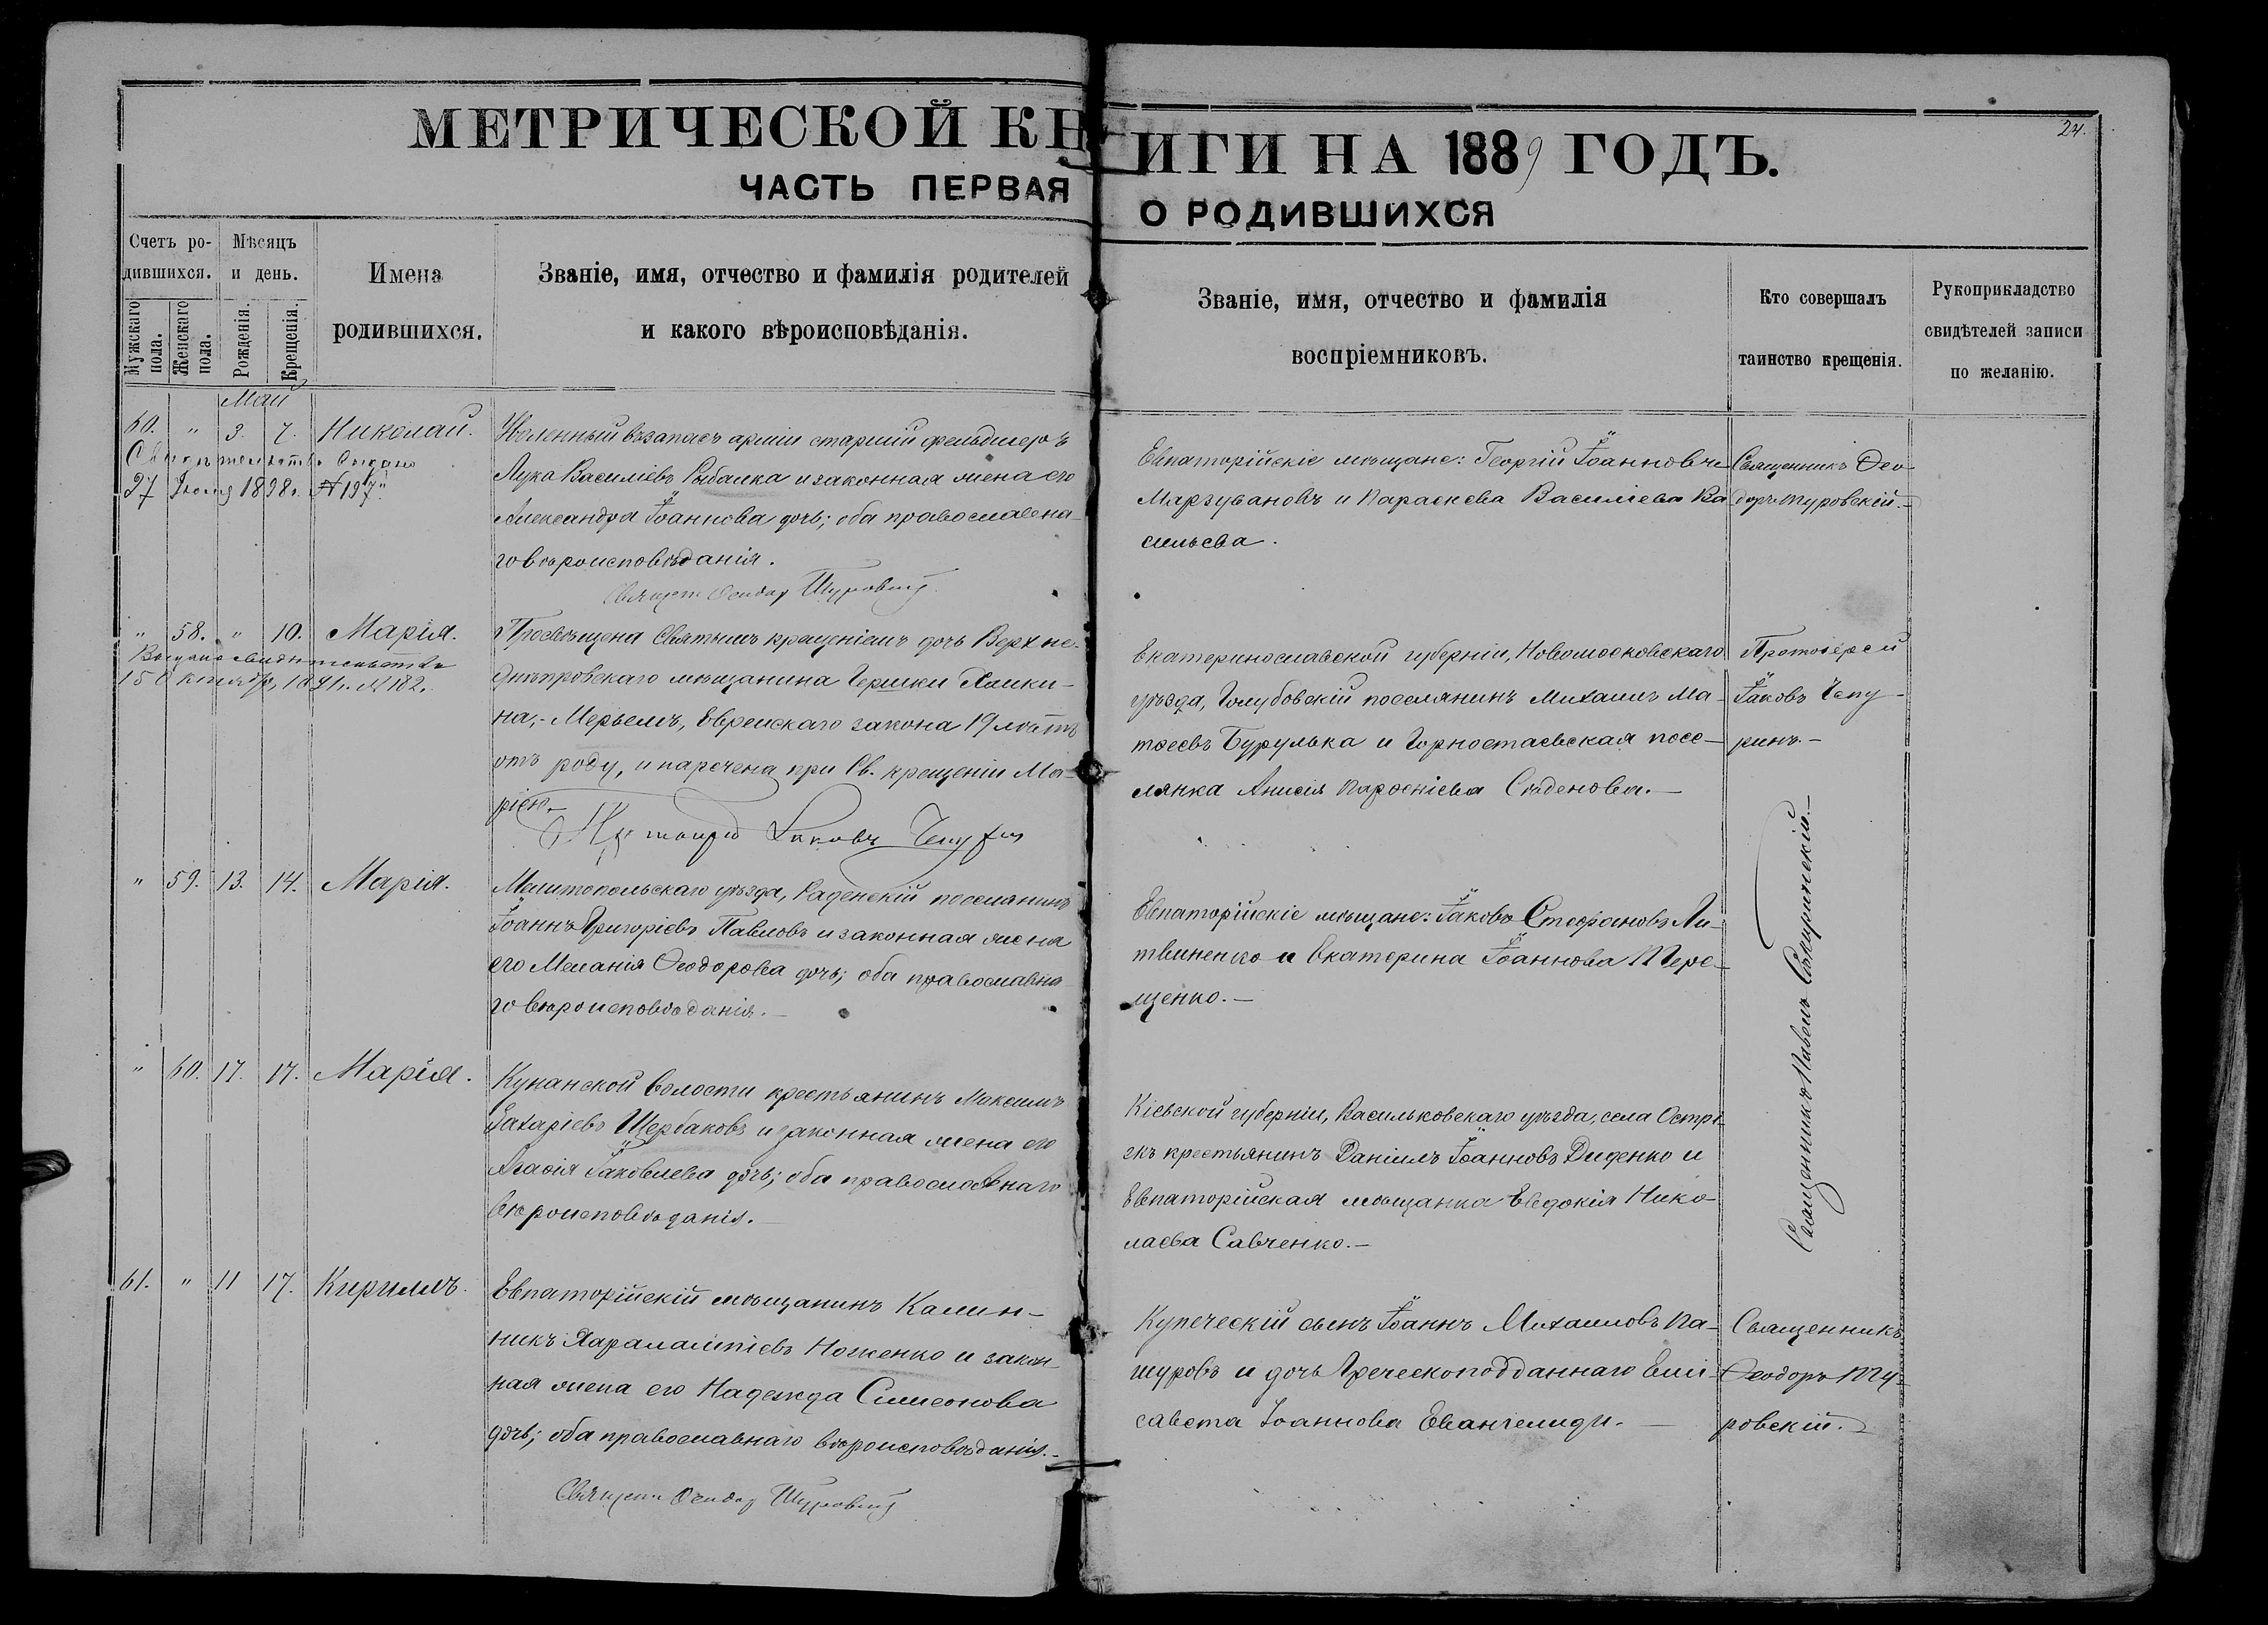 МЕТРИЧЕСКОЙ КНИГИ НА 1889 ГОДЪ.
24.
ЧАСТЬ ПЕРВАЯ О РОДИВШИХСЯ
Счетъ ро-
дившихся.
Мужскаго
пола.
Женскаго
пола.
Мѣсяцъ
и день.
Рожденія.
Крещенія.
Имена
родившихся.
Званіе, имя, отчество и фамилія родителей
и какого вѣроисповѣданія.
Званіе, имя, отчество и фамилія
воспріемниковъ.
Кто совершалъ
таинство крещенія.
Рукоприкладство
свидѣтелей записи
по желанію.
Май
60. " 3. 7. Николай.
Свидѣтельство
27 1898г. № 197.
Уволенный въ запасъ арміи старшій фельдшеръ
Лука Василіевъ Рыбалка и законная жена его
Александра Іоаннова дочь; оба православна-
го вѣроисповѣданія.
Священ Феодор Туровскій
Евпаторійскіе мѣщане: Георгій Іоанновъ
Марзувановъ и Параскева Василіева Ва-
сильева.
Священникъ Ѳео-
доръ Туровскій.-
" 58. " 10. Марія.
Выдано свидѣтельство
15 Октября, № 182.
Просвѣщена Святымъ крещеніемъ дочь Верхне-
днѣпровскаго мѣщанина Гершки Хаики-
на,- Мерьемъ, Еврейскаго закона 19 лѣтъ
отъ роду, и наречена при Св. крещеніи Ма-
ріею.-
Протоіерей Іаковъ Чепурин
Екатеринославской губерніи, Новомосковскаго
уѣзда, Голубовскій поселянинъ Михаилъ Ма-
тѳеевъ Бурулька и Горностаевская посе-
лянка Анисія Парѳеніева Сиденова.-
Протоіерей
Іаковъ Чепу-
ринъ.-
" 59. 13. 14. Марія.
Мелитопольскаго уѣзда, Раденскій поселянинъ
Іоаннъ Григоріевъ Павловъ и законная жена
его Меланія Ѳеодорова дочь; оба православна-
го вѣроисповѣданія.-
Евпаторійскіе мѣщане: Іаковъ Стефановъ Ли-
твиненко и Екатерина Іоаннова Тере-
щенко.-
Священникъ Павелъ
" 60. 17. 17. Марія.
Кунанской волости крестьянинъ Максимъ
Захаріевъ Щербаковъ и законная жена его
Агаѳія Іаковлева дочь; оба православнаго
вѣроисповѣданія.-
Кіевской губерніи, Васильковскаго уѣзда, села Остри-
екъ крестьянинъ Даніилъ Іоанновъ Диденко и
Евпаторійская мѣщанка Евдокія Нико-
лаева Савченко.-
61. " 11 17. Кириллъ.
Евпаторійскій мѣщанинъ Калин-
никъ Харалампіевъ Ноженко и закон-
ная жена его Надежда Симеонова
дочь; оба православнаго вѣроисповѣданія.-
Священ Феодор Туровскій
Купеческій сынъ Іоаннъ Михаиловъ Па-
шуровъ и дочь Греческоподданнаго Ели-
савета Іоаннова Евангелиди.-
Священникъ
Ѳеодоръ Ту-
ровскій.-